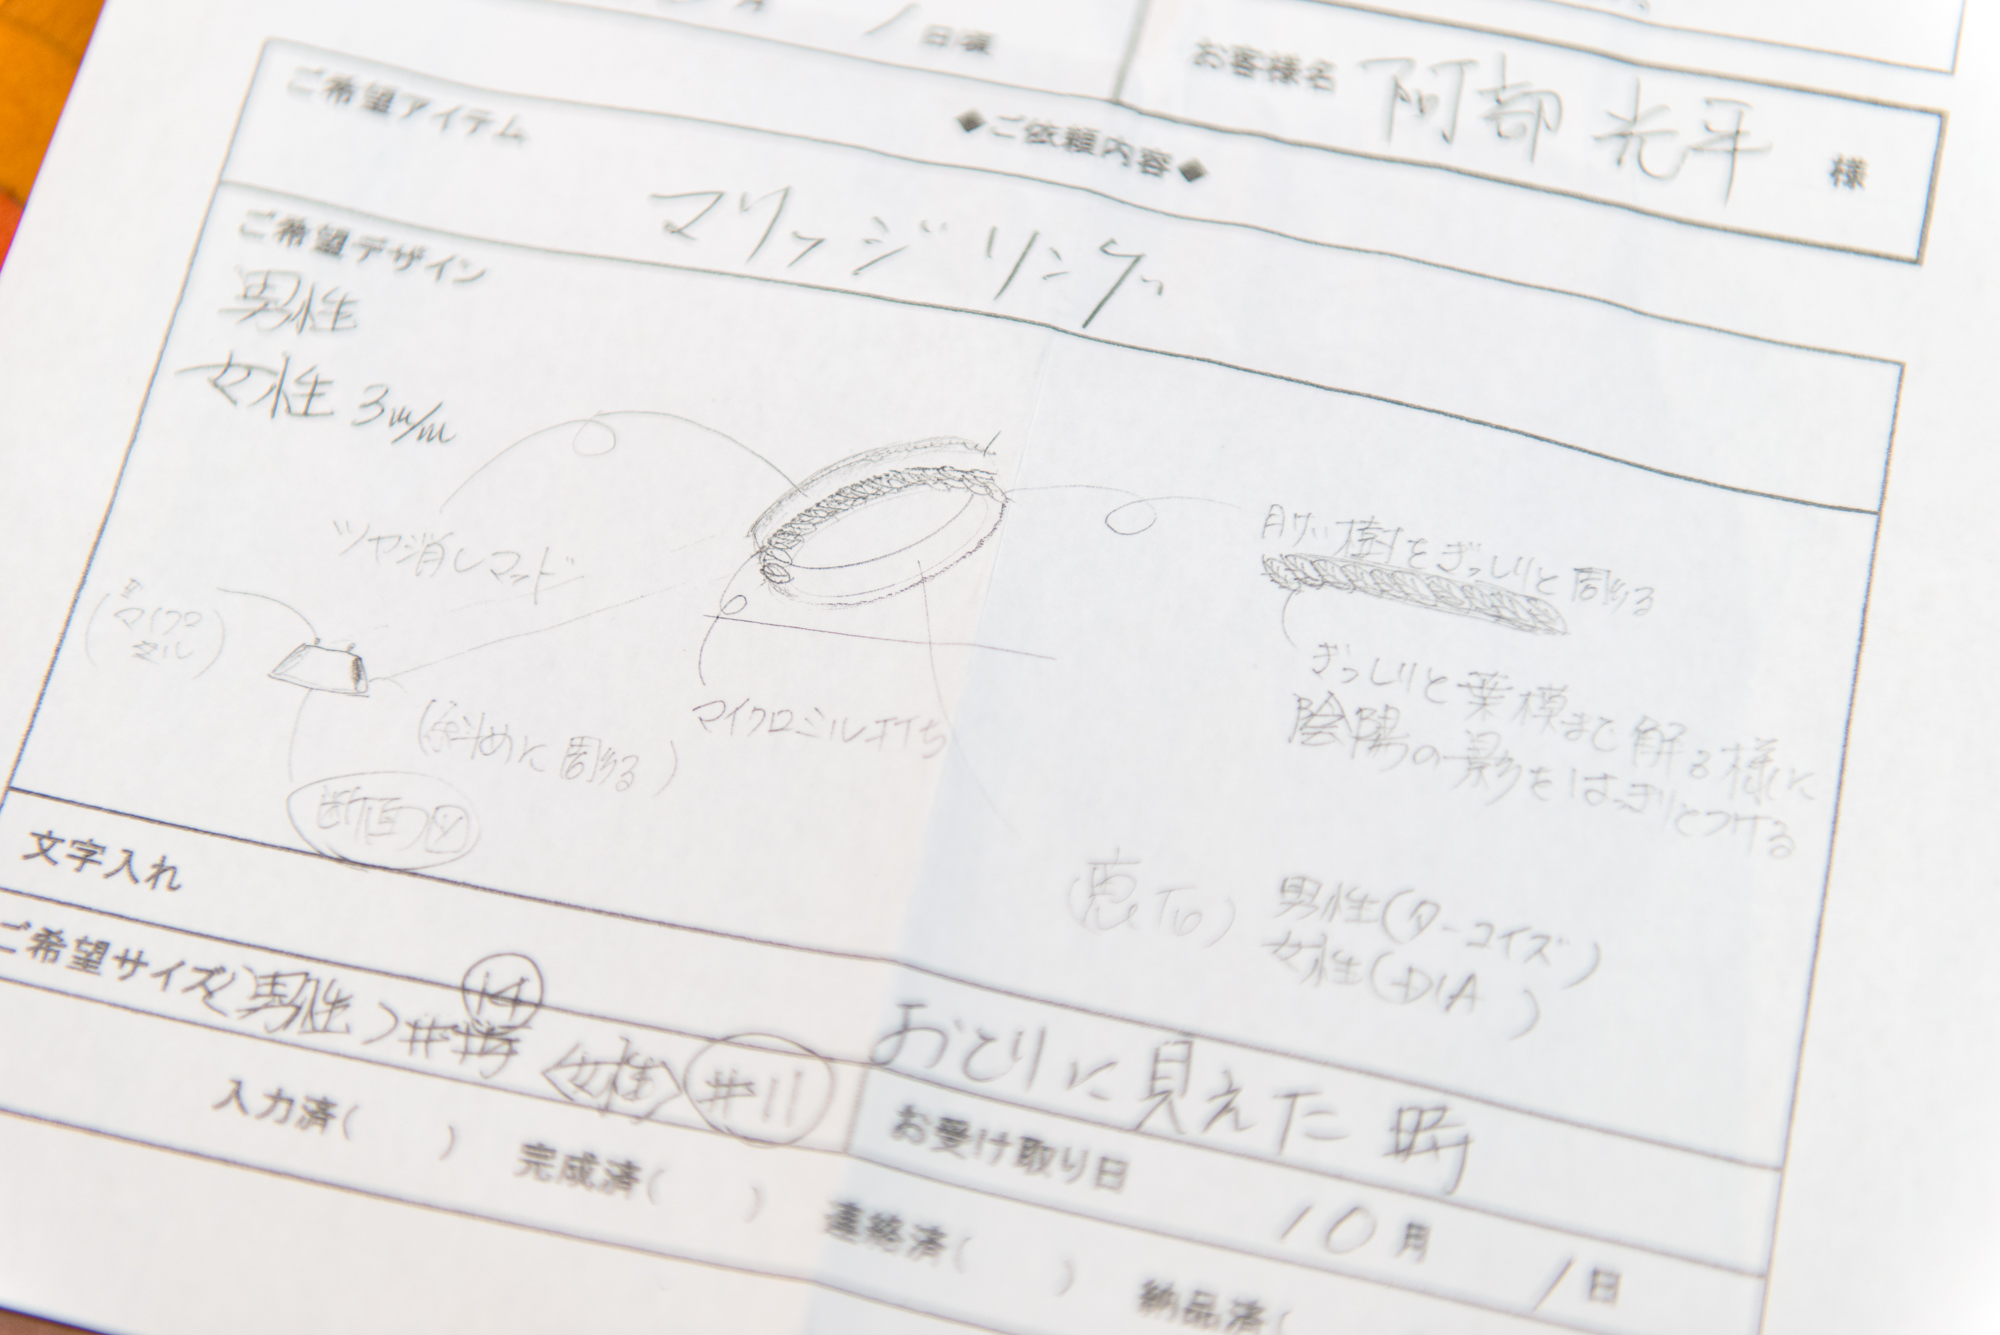 日頃
お客様名 阿部 光平 様
◆ご依頼内容◆
ご希望アイテム
マリッジリング
ご希望デザイン
男性
女性 3m/m
ツヤ消しマッド
(マイクロ
ミル)
(斜めに彫る)
断面図
マイクロミル打ち
樹をぎっしりと彫る
ぎっしりと葉模まで解る様に
陰陽の影をはっきりとつける
男性(ターコイズ)
女性(DIA )
文字入れ
ご希望サイズ(男性)# 14 <女性> #11
おとりに見えた時
お受け取り日
10月 1日
入力済( ) 完成済( ) 連絡済( ) 納品済(